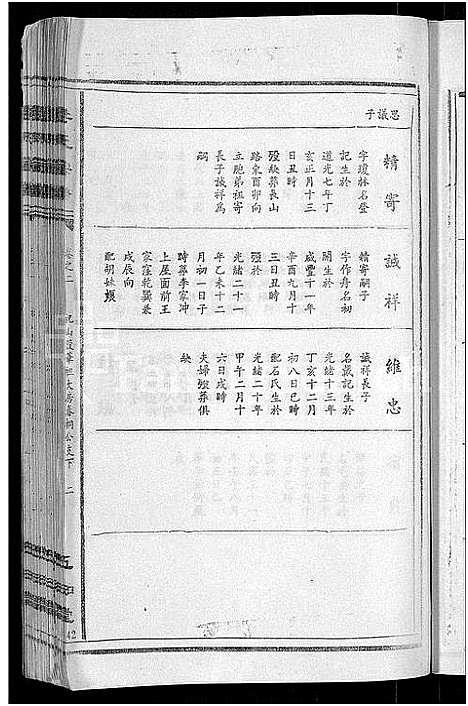 思議子
精寄
字瓊林名登
記生於
道光七年丁
亥正月十三
日丑時
歿缺葬長山
路東酉卯向
立胞弟祖寄
長子誠祥爲
嗣
誠祥
精寄嗣子
字作舟名初
開生於
咸豐十一年
辛酉九月十
三日丑時
歿於
光緒二十一
年乙未十二
月初一日子
時葬李家冲
上屋面前王
家窪乾巽兼
戌辰向
配胡妹
維忠
誠祥長子
名歲記生於
光緒十三年
丁亥十二月
初八日巳時
配石氏生於
光緒二十年
甲午二月十
六日戌時
夫婦歿葬俱
缺
卷之二
大房春桐公支下
二
42